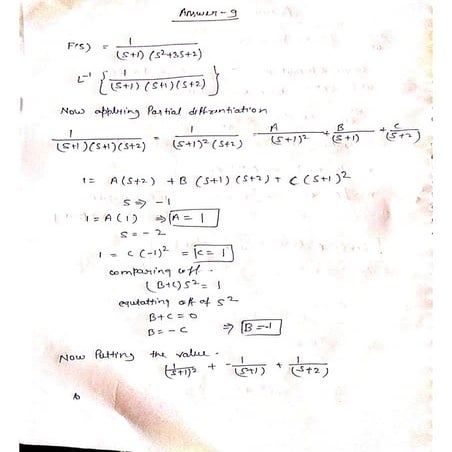 Answer-9
F(s) = 1/((s+1)(s²+3s+2))
L⁻¹ { 1/((s+1)(s+1)(s+2)) }
Now applying Partial
1/((s+1)(s+1)(s+2)) = 1/((s+1)²(s+2)) A/(s+1)² + B/(s+1) + C/(s+2)
1 = A(s+2) + B(s+1)(s+2) + C(s+1)²
s ⇒ -1
1 = A(1) ⇒ A = 1
s = -2
1 = C(-1)² = C = 1
comparing coff.
(B+C)s² = 1
equtatting off of s²
B+C = 0
B = -C ⇒ B = -1
Now Putting the value.
1/(s+1)² + -1/(s+1) + 1/(s+2)